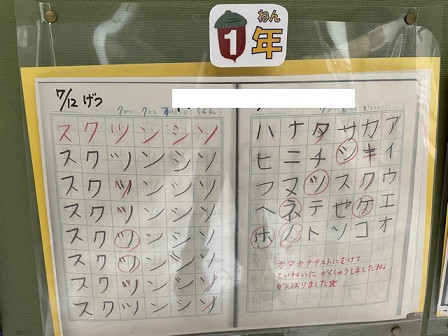 1ねん
年
7/12 げつ
アイウエオ
カキクケコ
サシスセソ
タチツテト
ナニヌネノ
ハヒフヘホ
カタカナテストにむけて
ていねいに がくしゅうしましたね。
がんばりました☆
ソソソソソソソソ
シシシシシシシシ
ンンンンンンンン
ツツツツツツツツ
クククククククク
スススススススス